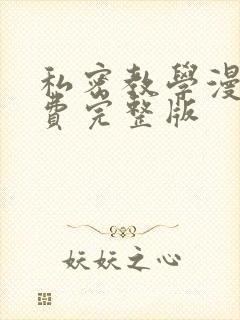 私密教學漫
費完整版
妖妖之心